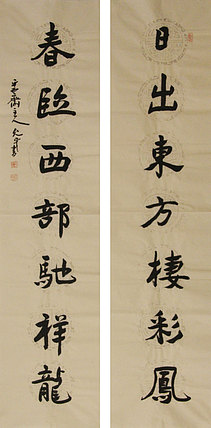 日出東方棲彩鳳
春臨西部馳祥龍